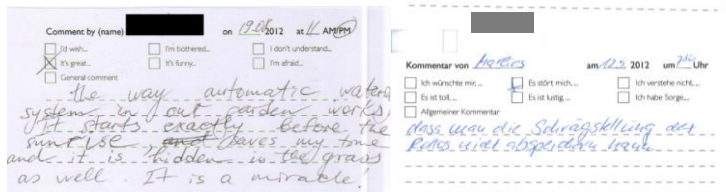 Comment by (name) on 19.08 2012 at 11 AM/PM
I'd wish... I'm bothered... I don't understand...
It's great... It's funny... I'm afraid...
General comment
the way automatic watering
system in out garden works,
It starts exactly before the
sunrise, and saves my time
and it is hidden in the grass
as well. It is a miracle!
Kommentar von am 12.5. 2012 um Uhr
Ich wünschte mir, ... Es stört mich, ... Ich verstehe nicht, ...
Es ist toll, ... Es ist lustig, ... Ich habe Sorge, ...
Allgemeiner Kommentar
dass man die Schrägstellung des
Rollos nicht abspeichern kann